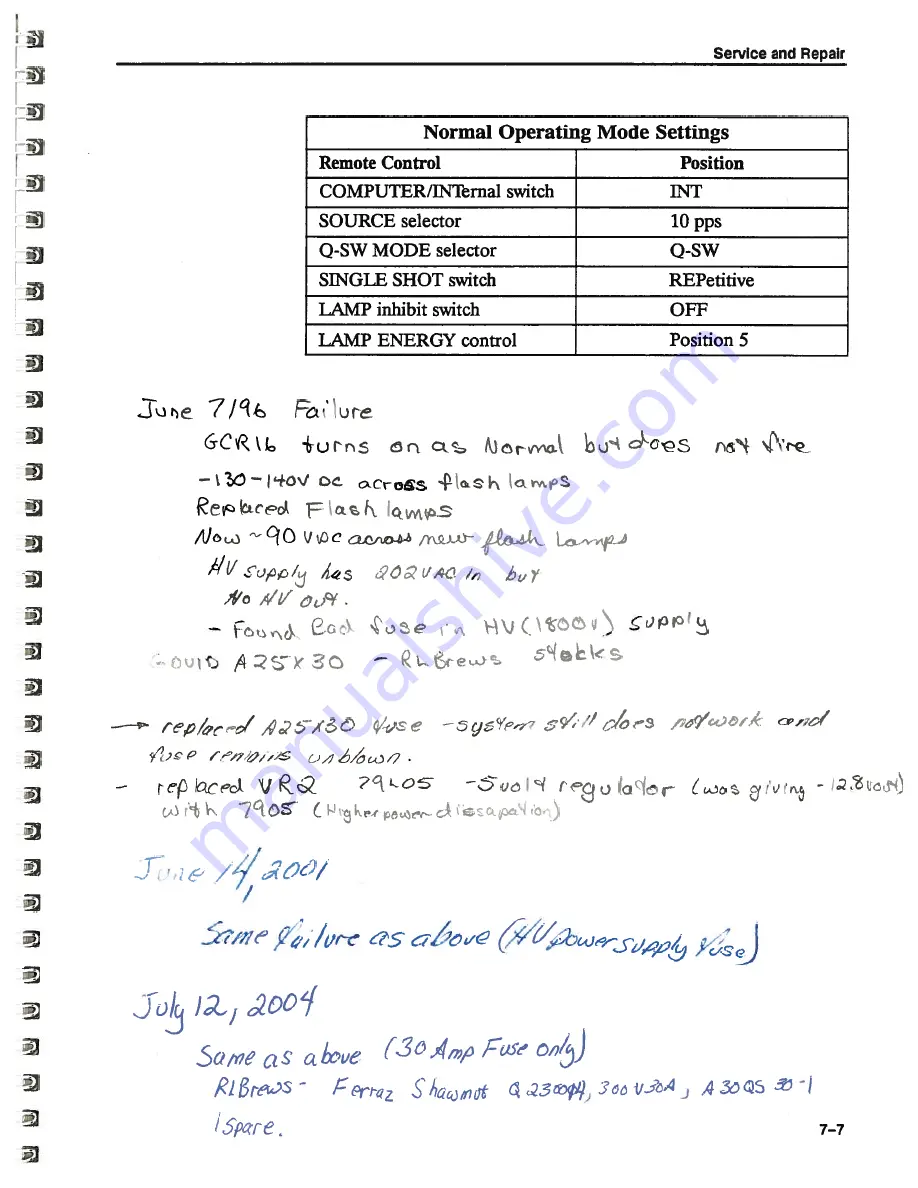 Service and Repair
Normal Operating Mode Settings
Remote Control Position
COMPUTER/INTernal switch INT
SOURCE selector 10 pps
Q-SW MODE selector Q-SW
SINGLE SHOT switch REPetitive
LAMP inhibit switch OFF
LAMP ENERGY control Position 5
June 7/96 Failure
GCR16 turns on as Normal but does not fire
-130-140V DC across flash lamps
Replaced Flash lamps
Now ~90 VDC across new flash Lamps
HV supply has 202VAC in but
No HV out.
- Found Bad fuse in HV(1800v) supply
Gould A25X30 - RLBrews stocks
→ replaced A25X30 fuse - system still does not work and
fuse remains unblown.
- replaced VR2 79L05 -5volt regulator (was giving -12.8volt)
with 7905 (Higher power dissapation)
June 14, 2001
Same failure as above (HV power supply fuse)
July 12, 2004
Same as above (30 Amp Fuse only)
RLBrews - Ferraz Shawmut 300V30A, A30QS 30-1
1 spare.
7-7
manualshive.com